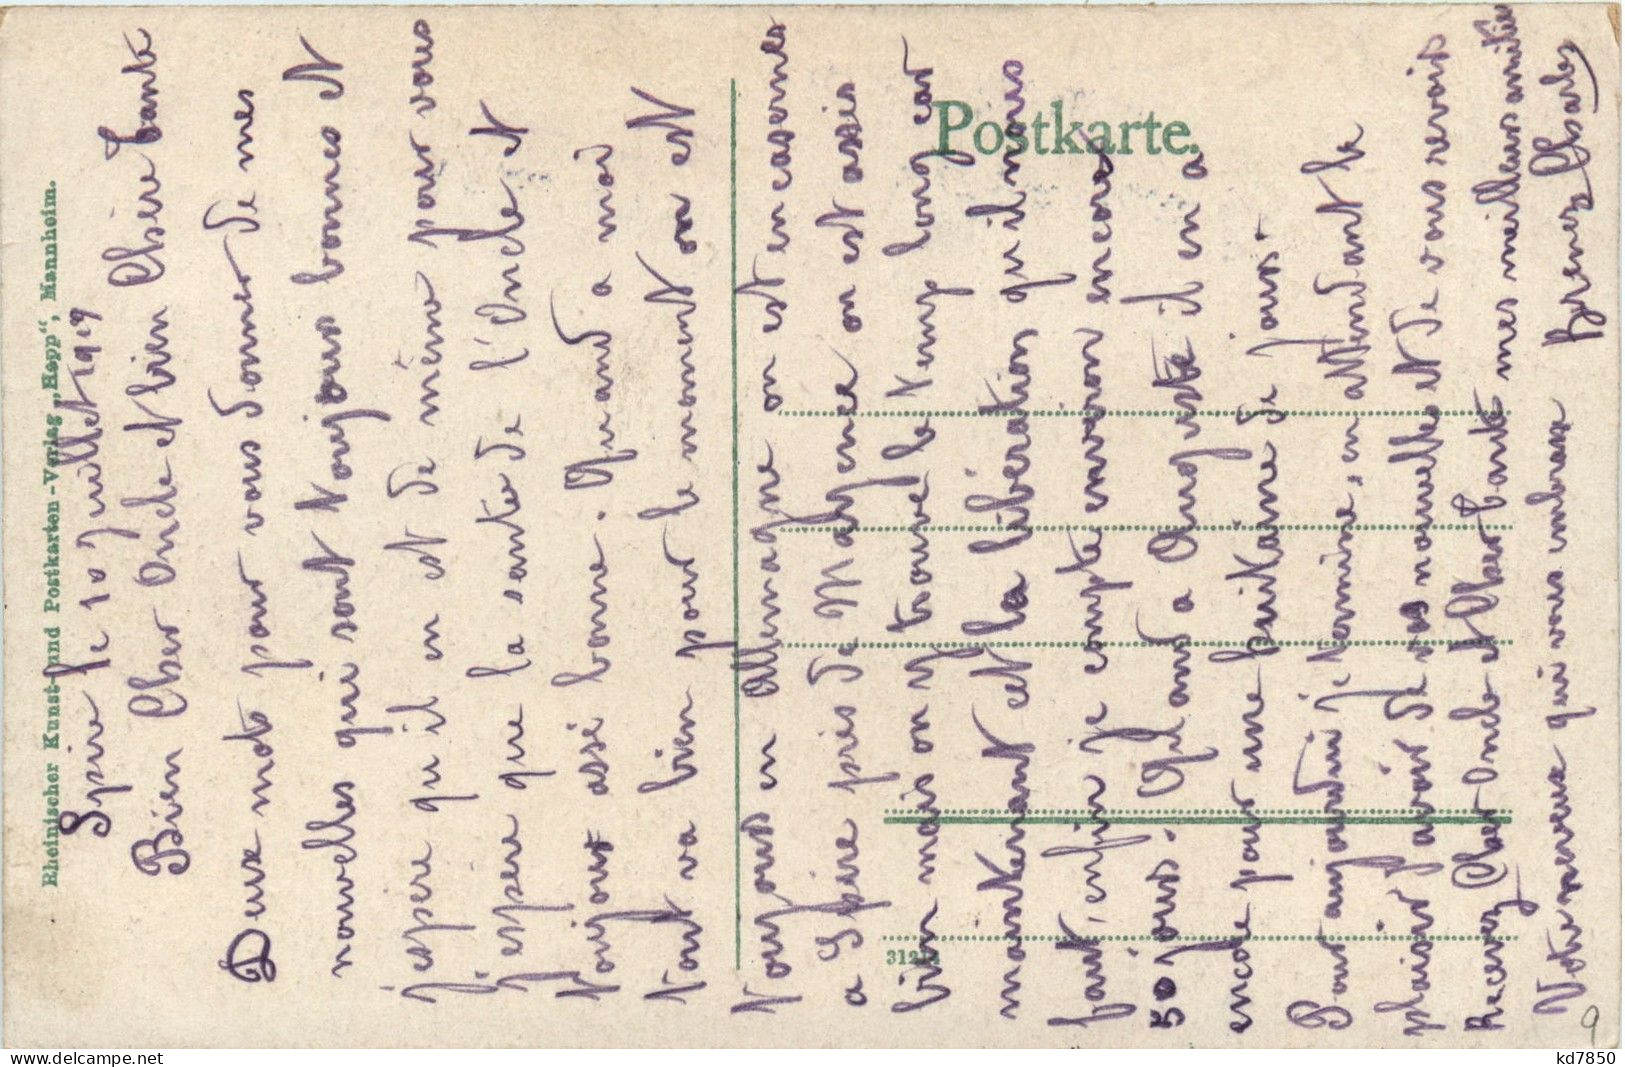 Rheinischer Kunst- und Postkarten-Verlag „Hepp“, Mannheim.
Spire le 10 Juillet 1919
Bien Cher Oncle et bien Chère tante
Deux mots pour vous donner de mes
nouvelles qui sont toujours bonnes et
j'espère qu'il en est de même pour vous
j'espère que la santé de l'Oncle et
toujours assé bonne. Quand a moi
tout va bien pour le moment on est
toujours en Allemagne on est en casernes
a Spire près de Mayence on est assis
bien mais on y trouve le temp long car
maintenant et la libération qu'il nous
faut, enfin je compte environ encore
50 jours. Quand a Auguste il en a
encore pour une huitaine de jours.
Pour aujourd'hui je termine, en attendant le
plaisir d'avoir de vos nouvelle et de vous revoir
Recevez Cher Oncle et Cher tante mes meilleurs amitiés
Votre neveux qui vous embrasse
Charles
Postkarte.
9
kd7850